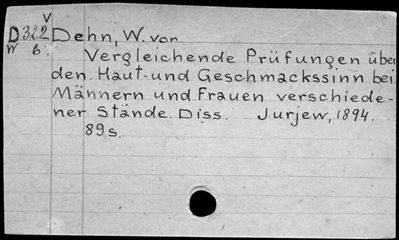 V
D322 Dehn, W. von
W 6.
Vergleichende Prüfungen über
den Haut- und Geschmackssinn bei
Männern und Frauen verschiede-
ner Stände. Diss. Jurjew, 1894.
89 s.